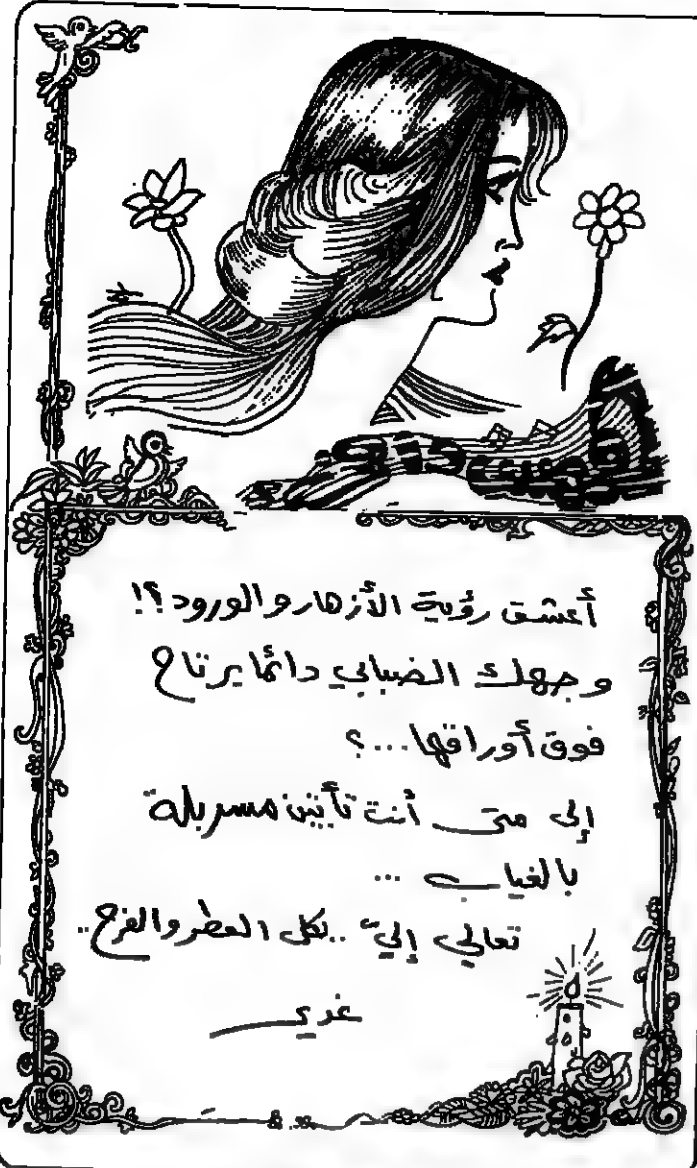 أعشق رؤية الأزهار والورود؟!
وجهك الضبابي دائما يرتاح
فوق أوراقها...؟
إلى متى أنت تأتين مسربلة
بالغياب ...
تعالي إليّ .. بكل العطر والفرح ..